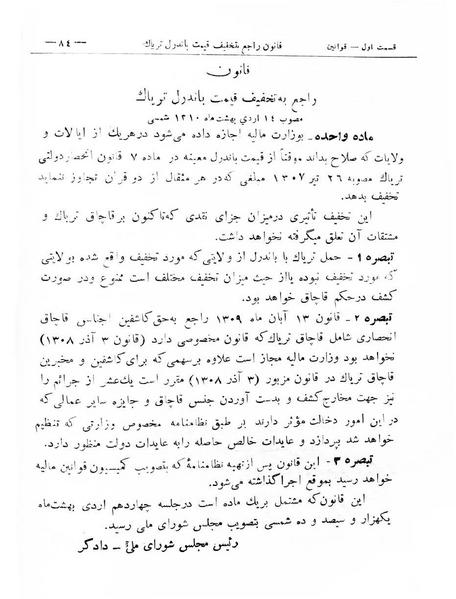 قسمت اول — قوانین
قانون راجع بتخفیف قیمت باندرل تریاك
— ۸۴ —
قانون
راجع به تخفیف قیمت باندرل تریاك
مصوب ۱۴ اردی بهشت ماه ۱۳۱۰ شمسی
ماده واحده ـ بوزارت مالیه اجازه داده می‌شود در هریك از ایالات و
ولایات که صلاح بداند موقتاً از قیمت باندرل معینه در ماده ۷ قانون انحصار دولتی
تریاك مصوبه ۲۶ تیر ۱۳۰۷ مبلغی که در هر مثقال از دو قران تجاوز ننماید
تخفیف بدهد.
این تخفیف تأثیری در میزان جزای نقدی که تاکنون بر قاچاق تریاك و
مشتقات آن تعلق میگرفته نخواهد داشت.
تبصره ۱ ـ حمل تریاك با باندرل از ولایتی که مورد تخفیف واقع شده بولایتی
که مورد تخفیف نبوده یا از حیث میزان تخفیف مختلف است ممنوع و در صورت
کشف در حکم قاچاق خواهد بود.
تبصره ۲ ـ قانون ۱۳ آبان ماه ۱۳۰۹ راجع به حق کاشفین اجناس قاچاق
انحصاری شامل قاچاق تریاك که قانون مخصوصی دارد (قانون ۳ آذر ۱۳۰۸)
نخواهد بود وزارت مالیه مجاز است علاوه بر سهمی که برای کاشفین و مخبرین
قاچاق تریاك در قانون مزبور (۳ آذر ۱۳۰۸) مقرر است یك عشر از جرائم را
نیز جهت مخارج کشف و بدست آوردن جنس قاچاق و جایزه سایر عمالی که
در این امور دخالت مؤثر دارند بر طبق نظامنامه مخصوص وزارتی که تنظیم
خواهد شد پردازد و عایدات خالص حاصله را به عایدات دولت منظور دارد.
تبصره ۳ ـ این قانون پس از تهیه نظامنامۀ که بتصویب کمیسیون قوانین مالیه
خواهد رسید بموقع اجرا گذاشته می‌شود.
این قانون که مشتمل بر یك ماده است در جلسه چهاردهم اردی بهشت ماه
یکهزار و سیصد و ده شمسی بتصویب مجلس شورای ملی رسید.
رئیس مجلس شورای ملی ـ دادگر